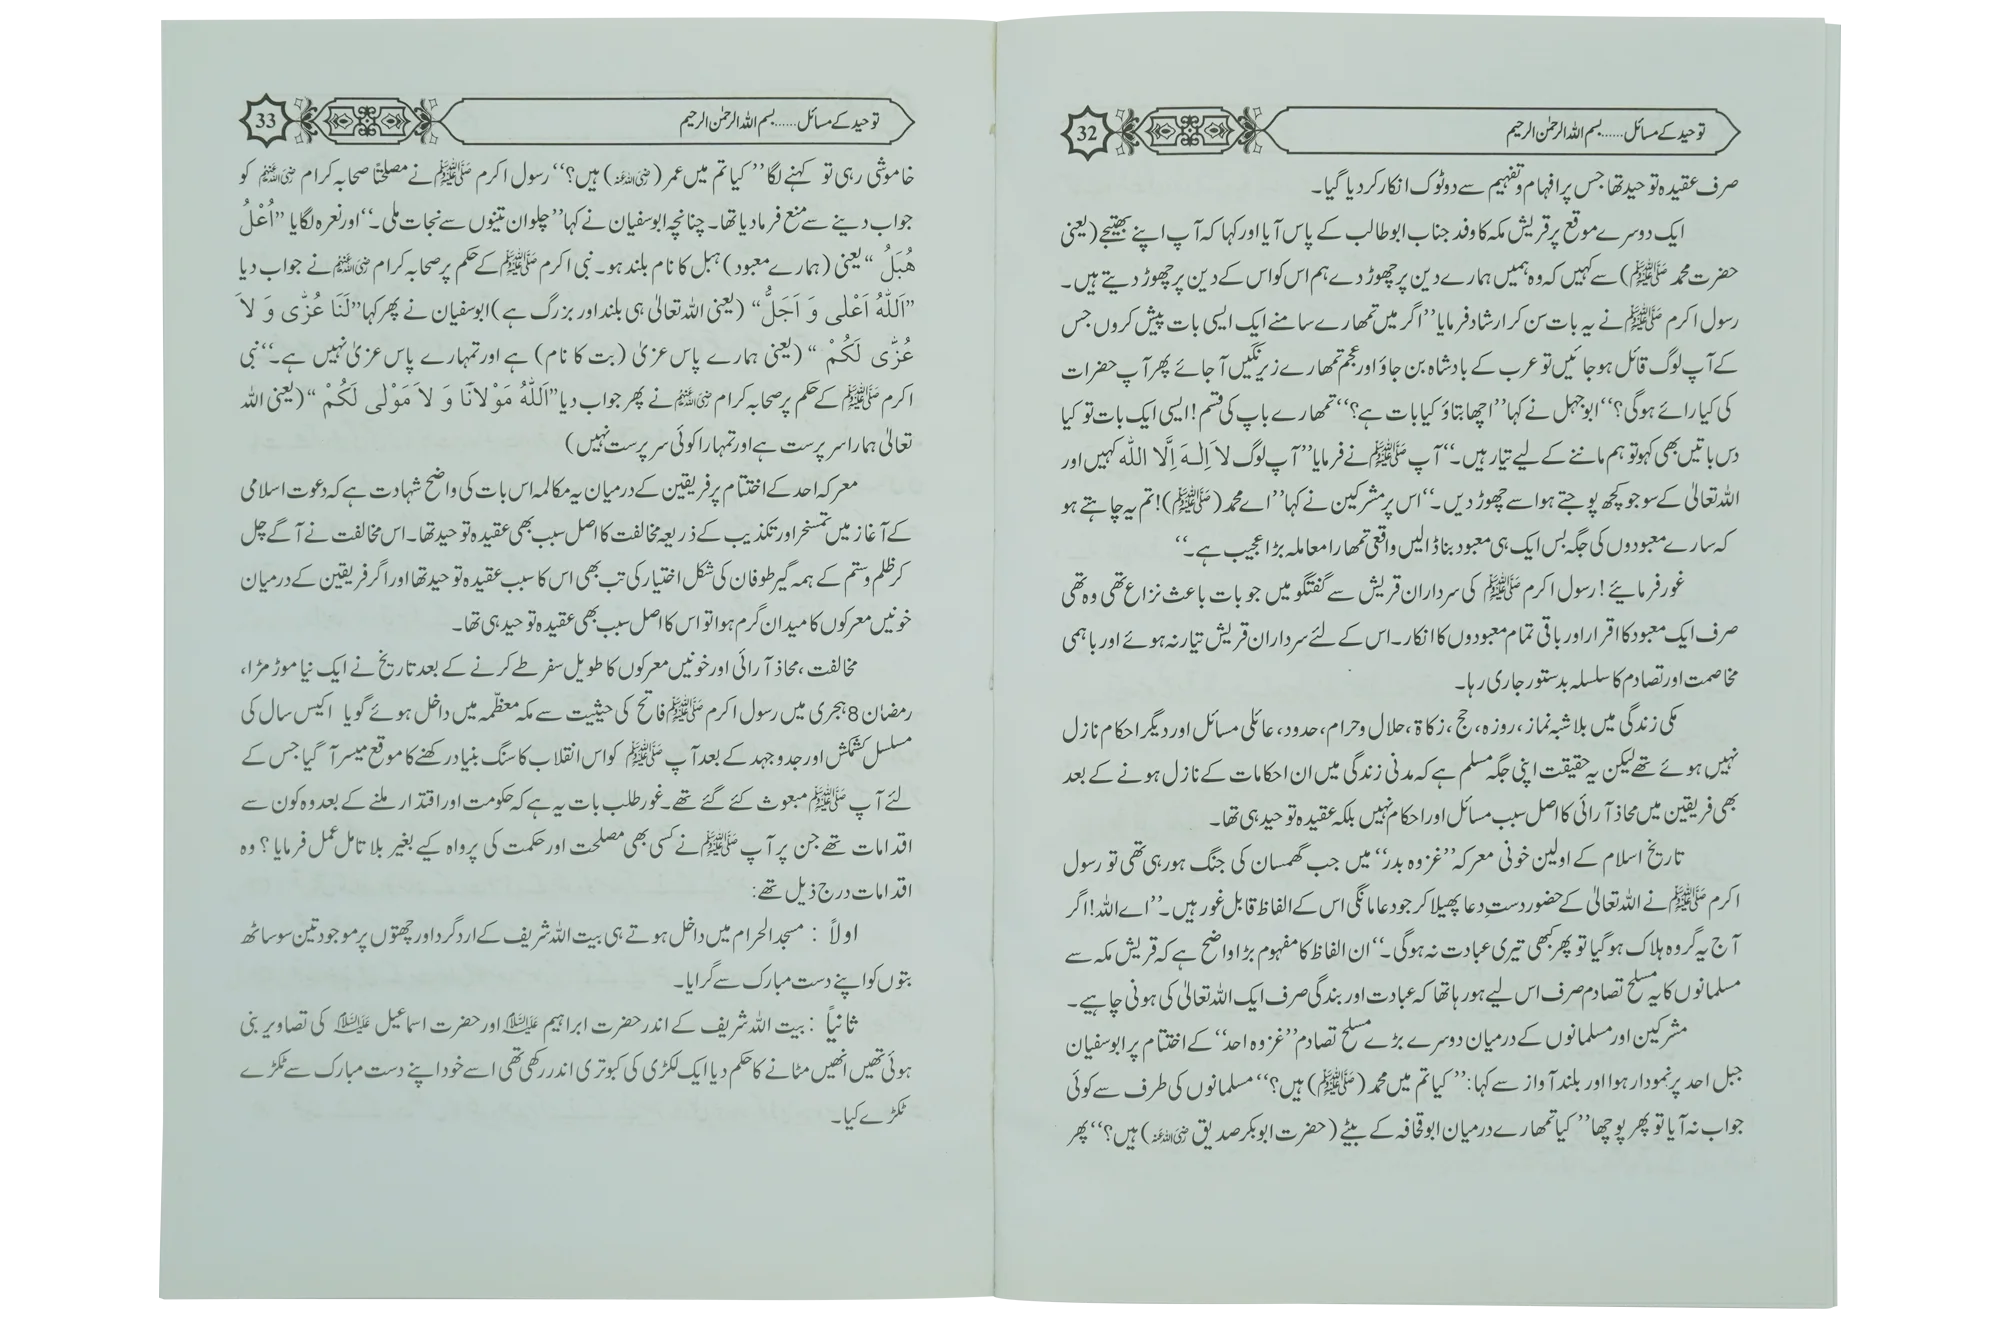 توحید کے مسائل......بسم اللہ الرحمٰن الرحیم
32
صرف عقیدہ توحید تھا جس پر افہام و تفہیم سے دوٹوک انکار کردیا گیا۔
ایک دوسرے موقع پر قریش مکہ کا وفد جناب ابوطالب کے پاس آیا اور کہا کہ آپ اپنے بھتیجے (یعنی
حضرت محمد ﷺ) سے کہیں کہ وہ ہمیں ہمارے دین پر چھوڑ دے ہم اس کو اس کے دین پر چھوڑ دیتے ہیں۔
رسول اکرم ﷺ نے یہ بات سن کر ارشاد فرمایا’’اگر میں تمھارے سامنے ایک ایسی بات پیش کروں جس
کے آپ لوگ قائل ہوجائیں تو عرب کے بادشاہ بن جاؤ اور عجم تمھارے زیر نگیں آ جائے پھر آپ حضرات
کی کیا رائے ہوگی؟‘‘ابوجہل نے کہا’’اچھا بتاؤ کیا بات ہے؟‘‘تمھارے باپ کی قسم! ایسی ایک بات تو کیا
دس باتیں بھی کہو تو ہم ماننے کے لیے تیار ہیں۔‘‘آپ ﷺ نے فرمایا’’آپ لوگ لاَ اِلٰـہَ اِلَّا اللّٰہ کہیں اور
اللہ تعالیٰ کے سوا جو کچھ پوجتے ہو اسے چھوڑ دیں۔‘‘اس پر مشرکین نے کہا’’اے محمد (ﷺ)! تم یہ چاہتے ہو
کہ سارے معبودوں کی جگہ بس ایک ہی معبود بنا ڈالیں واقعی تمھارا معاملہ بڑا عجیب ہے۔‘‘
غور فرمایئے! رسول اکرم ﷺ کی سرداران قریش سے گفتگو میں جو بات باعث نزاع تھی وہ تھی
صرف ایک معبود کا اقرار اور باقی تمام معبودوں کا انکار۔ اس کے لئے سرداران قریش تیار نہ ہوئے اور باہمی
مخاصمت اور تصادم کا سلسلہ بدستور جاری رہا۔
مکی زندگی میں بلاشبہ نماز، روزہ، حج، زکاۃ، حلال و حرام، حدود، عائلی مسائل اور دیگر احکام نازل
نہیں ہوئے تھے لیکن یہ حقیقت اپنی جگہ مسلم ہے کہ مدنی زندگی میں ان احکامات کے نازل ہونے کے بعد
بھی فریقین میں محاذ آرائی کا اصل سبب مسائل اور احکام نہیں بلکہ عقیدہ توحید ہی تھا۔
تاریخ اسلام کے اولین خونی معرکہ’’غزوہ بدر‘‘ میں جب گھمسان کی جنگ ہورہی تھی تو رسول
اکرم ﷺ نے اللہ تعالیٰ کے حضور دستِ دعا پھیلا کر جو دعا مانگی اس کے الفاظ قابل غور ہیں۔’’اے اللہ! اگر
آج یہ گروہ ہلاک ہوگیا تو پھر کبھی تیری عبادت نہ ہوگی۔‘‘ان الفاظ کا مفہوم بڑا واضح ہے کہ قریش مکہ سے
مسلمانوں کا یہ مسلح تصادم صرف اس لیے ہورہا تھا کہ عبادت اور بندگی صرف ایک اللہ تعالیٰ کی ہونی چاہیے۔
مشرکین اور مسلمانوں کے درمیان دوسرے بڑے مسلح تصادم’’غزوہ احد‘‘ کے اختتام پر ابوسفیان
جبل احد پر نمودار ہوا اور بلند آواز سے کہا:’’کیا تم میں محمد (ﷺ) ہیں؟‘‘مسلمانوں کی طرف سے کوئی
جواب نہ آیا تو پھر پوچھا’’کیا تمھارے درمیان ابوقحافہ کے بیٹے (حضرت ابوبکر صدیق رضی اللہ عنہ) ہیں؟‘‘پھر
توحید کے مسائل......بسم اللہ الرحمٰن الرحیم
33
خاموشی رہی تو کہنے لگا’’کیا تم میں عمر (رضی اللہ عنہ) ہیں؟‘‘رسول اکرم ﷺ نے مصلحتًا صحابہ کرام رضی اللہ عنہم کو
جواب دینے سے منع فرما دیا تھا۔ چنانچہ ابوسفیان نے کہا’’چلو ان تینوں سے نجات ملی۔‘‘اور نعرہ لگایا’’اُعْلُ
ھُبَلُ‘‘یعنی (ہمارے معبود) ہبل کا نام بلند ہو۔ نبی اکرم ﷺ کے حکم پر صحابہ کرام رضی اللہ عنہم نے جواب دیا
’’اَللّٰہُ اَعْلٰی وَ اَجَلُّ‘‘ (یعنی اللہ تعالیٰ ہی بلند اور بزرگ ہے) ابوسفیان نے پھر کہا’’لَنَا عُزّٰی وَ لاَ
عُزّٰی لَکُمْ‘‘ (یعنی ہمارے پاس عزیٰ (بت کا نام) ہے اور تمہارے پاس عزیٰ نہیں ہے۔‘‘نبی
اکرم ﷺ کے حکم پر صحابہ کرام رضی اللہ عنہم نے پھر جواب دیا’’اَللّٰہُ مَوْلاَنَا وَ لاَ مَوْلٰی لَکُمْ‘‘ (یعنی اللہ
تعالیٰ ہمارا سرپرست ہے اور تمہارا کوئی سرپرست نہیں)
معرکہ احد کے اختتام پر فریقین کے درمیان یہ مکالمہ اس بات کی واضح شہادت ہے کہ دعوت اسلامی
کے آغاز میں تمسخر اور تکذیب کے ذریعہ مخالفت کا اصل سبب بھی عقیدہ توحید تھا۔ اس مخالفت نے آگے چل
کر ظلم و ستم کے ہمہ گیر طوفان کی شکل اختیار کی تب بھی اس کا سبب عقیدہ توحید تھا اور اگر فریقین کے درمیان
خونیں معرکوں کا میدان گرم ہوا تو اس کا اصل سبب بھی عقیدہ توحید ہی تھا۔
مخالفت، محاذ آرائی اور خونیں معرکوں کا طویل سفر طے کرنے کے بعد تاریخ نے ایک نیا موڑ مڑا،
رمضان 8 ہجری میں رسول اکرم ﷺ فاتح کی حیثیت سے مکہ معظّمہ میں داخل ہوئے گویا اکیس سال کی
مسلسل کشمکش اور جدوجہد کے بعد آپ ﷺ کو اس انقلاب کا سنگ بنیاد رکھنے کا موقع میسر آ گیا جس کے
لئے آپ ﷺ مبعوث کئے گئے تھے۔ غور طلب بات یہ ہے کہ حکومت اور اقتدار ملنے کے بعد وہ کون سے
اقدامات تھے جن پر آپ ﷺ نے کسی بھی مصلحت اور حکمت کی پرواہ کیے بغیر بلا تامل عمل فرمایا؟ وہ
اقدامات درج ذیل تھے:
اولاً : مسجد الحرام میں داخل ہوتے ہی بیت اللہ شریف کے اردگرد اور چھتوں پر موجود تین سو ساٹھ
بتوں کو اپنے دست مبارک سے گرایا۔
ثانیاً : بیت اللہ شریف کے اندر حضرت ابراہیم علیہ السلام اور حضرت اسماعیل علیہ السلام کی تصاویر بنی
ہوئی تھیں انھیں مٹانے کا حکم دیا ایک لکڑی کی کبوتری اندر رکھی تھی اسے خود اپنے دست مبارک سے ٹکڑے
ٹکڑے کیا۔